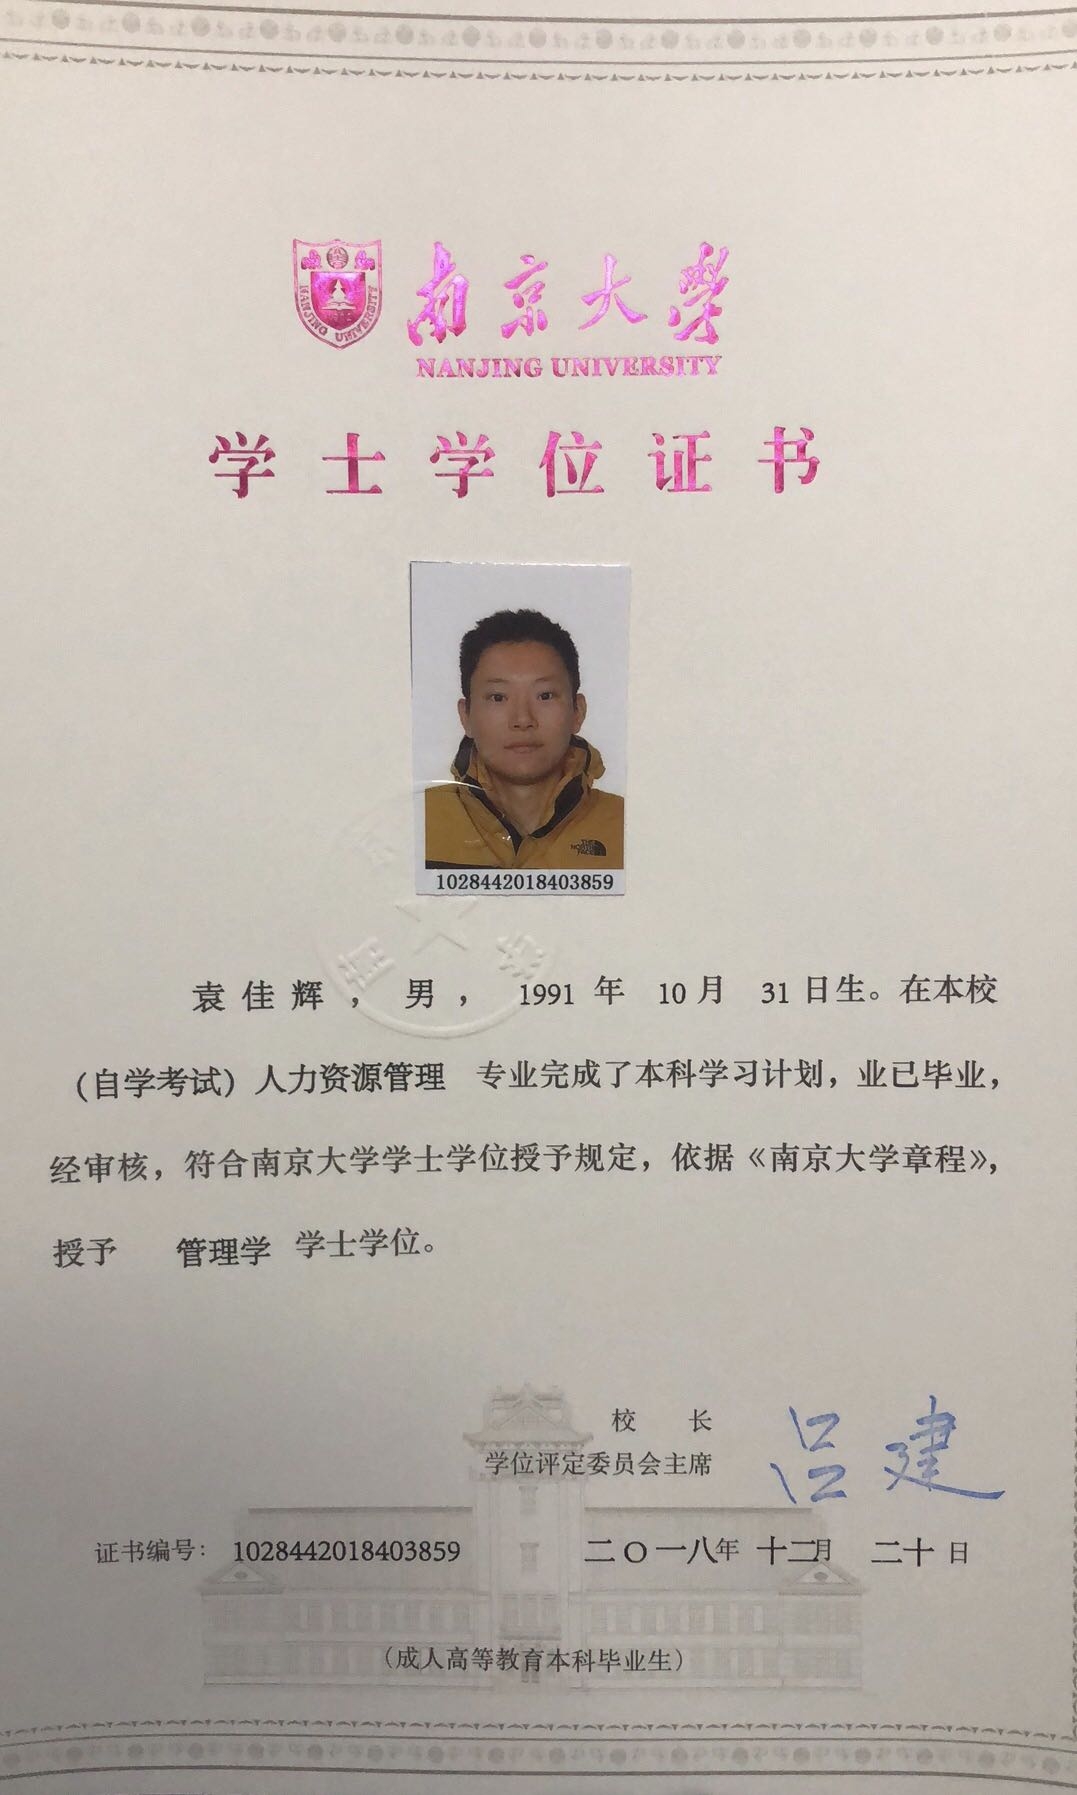 南京大學
NANJING UNIVERSITY
NANJING UNIVERSITY
学士学位证书
THE NORTH FACE
1028442018403859
袁佳辉，男，1991年10月31日生。在本校
(自学考试)人力资源管理 专业完成了本科学习计划，业已毕业，
经审核，符合南京大学学士学位授予规定，依据《南京大学章程》，
授予 管理学 学士学位。
校 长
学位评定委员会主席
吕建
证书编号：1028442018403859 二〇一八年 十二月 二十日
（成人高等教育本科毕业生）